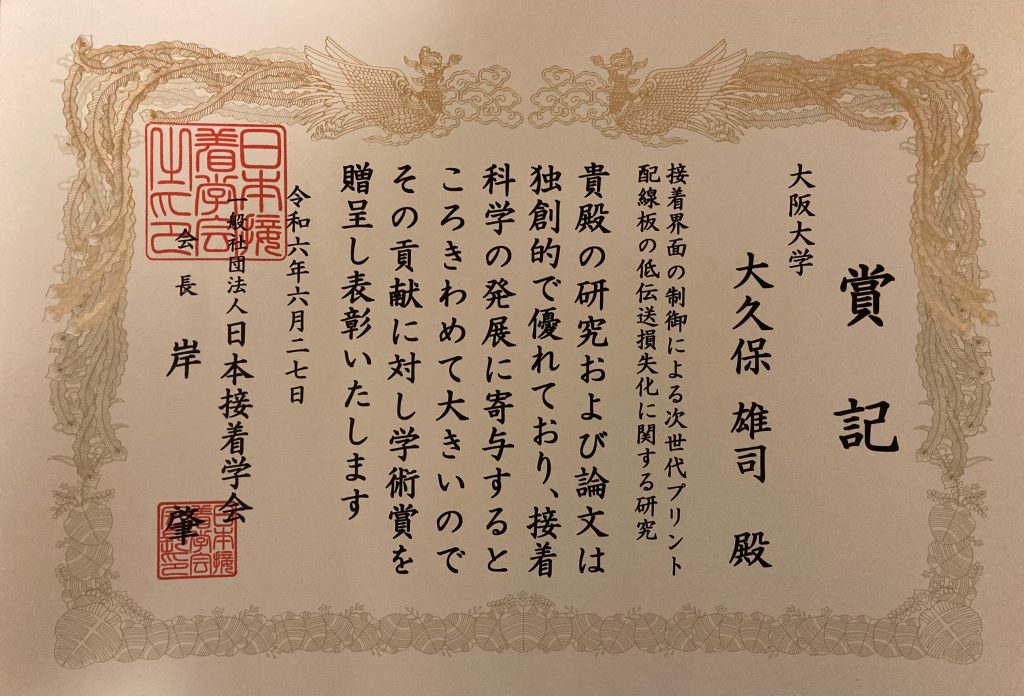 賞記
大阪大学
大久保 雄司 殿
接着界面の制御による次世代プリント
配線板の低伝送損失化に関する研究
貴殿の研究および論文は
独創的で優れており、接着
科学の発展に寄与すると
ころきわめて大きいので
その貢献に対し学術賞を
贈呈し表彰いたします
令和六年六月二七日
一般社団法人日本接着学会
会長 岸 肇
日本接
着学会
之印